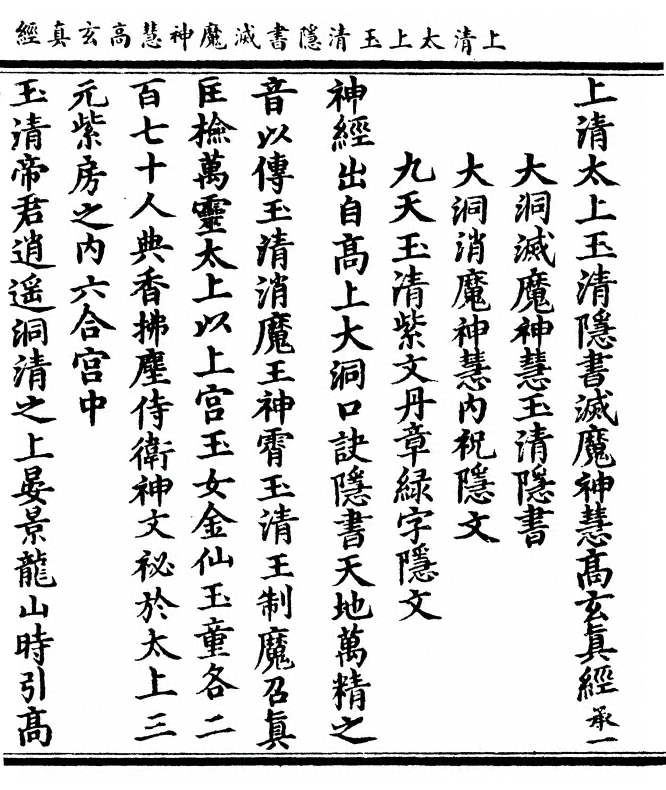 上清太上玉清隱書滅魔神慧高玄真經
上清太上玉清隱書滅魔神慧高玄眞經 承一
大洞滅魔神慧玉清隱書
大洞消魔神慧内祝隱文
九天玉清紫文丹章緑字隱文
神經出自高上大洞口訣隱書天地萬精之
音以傳玉清消魔王神霄玉清王制魔召眞
匡檢萬靈太上以上宫玉女金仙玉童各二
百七十人典香拂塵侍衛神文祕於太上三
元紫房之内六合宫中
玉清帝君逍遥洞清之上晏景龍山時引高